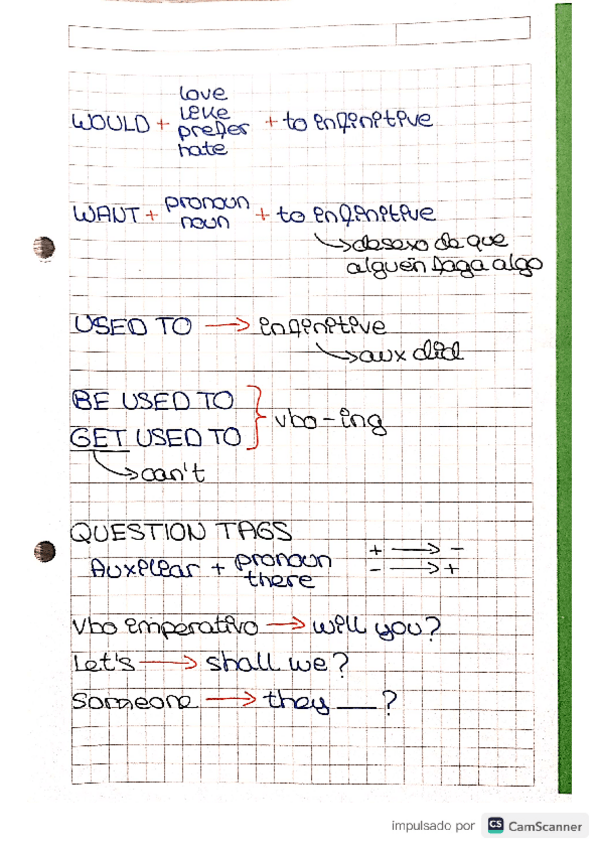 love
like
WOULD + prefer + to infinitive
hate
WANT + pronoun + to infinitive
noun
↳ deseo de que
alguén faga algo
USED TO → infinitive
↳ aux did
BE USED TO
GET USED TO } vbo-ing
↳ can't
QUESTION TAGS
Auxiliar + pronoun + → -
there - → +
Vbo imperativo → will you?
Let's → shall we?
Someone → they __?
impulsado por CS CamScanner